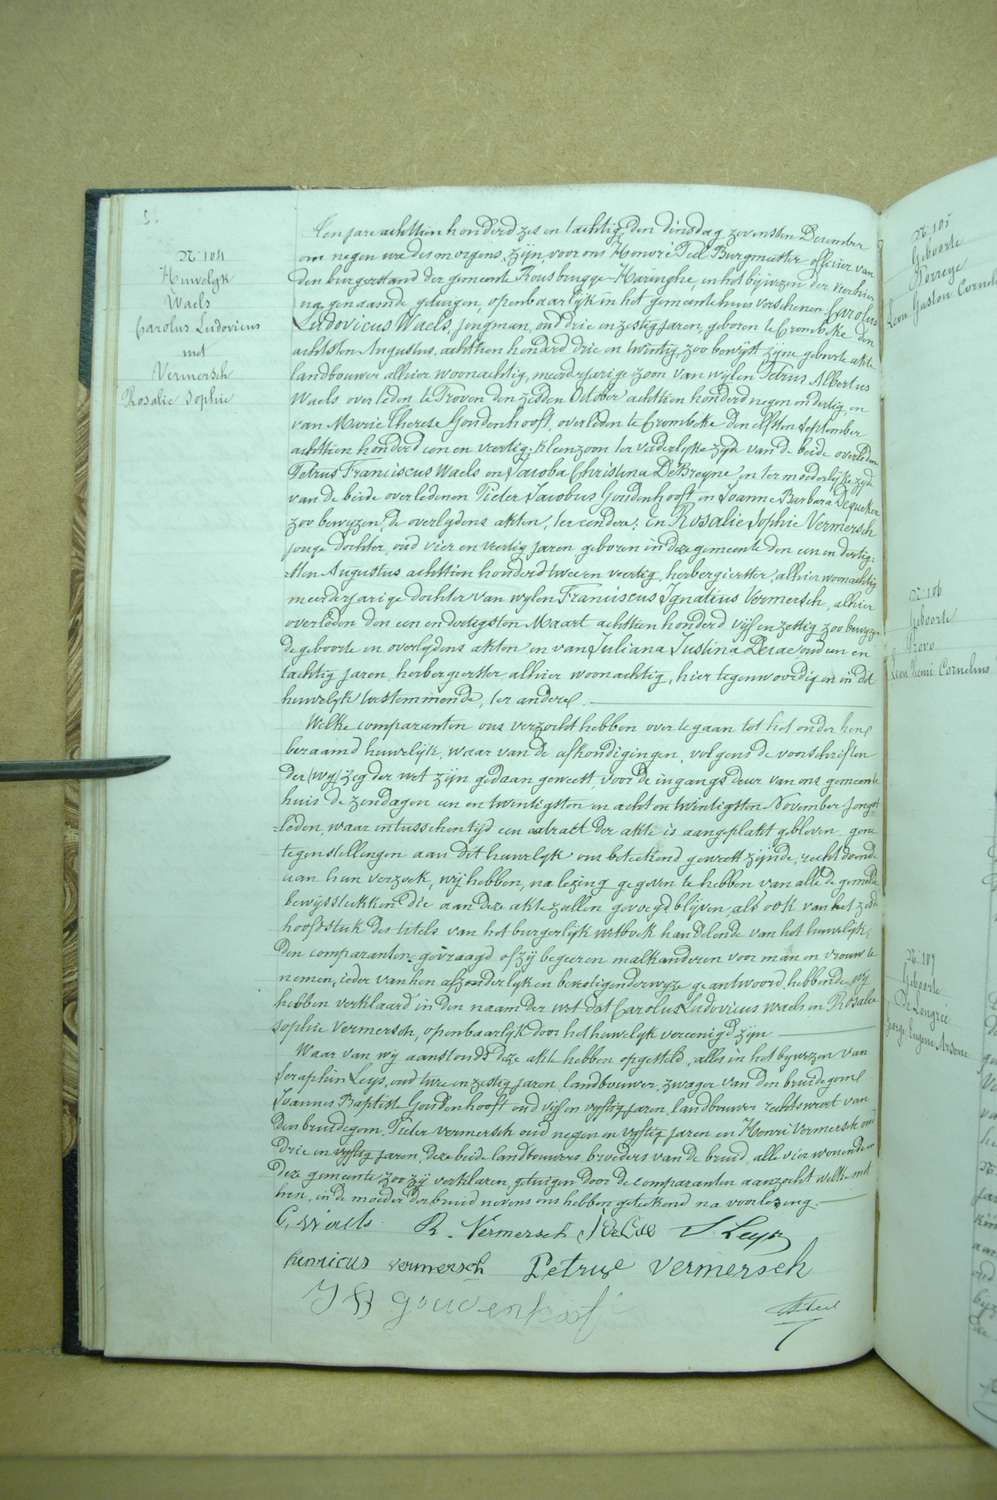 N. 104
Huwelyk
Waels
Carolus Ludovicus
met
Vermersch
Rosalie Sophie
Ten jare achttien honderd zes en tachtig, den dinsdag zevensten December
om negen ure des morgens, zijn voor ons Honoré Teel Burgmeester officier van
den burgerstand der gemeente Rousbrugge-Haringhe, en in het bijwezen der nerhier
na genaamde getuigen, openbaarlijk in het gemeentehuis verschenen Carolus
Ludovicus Waels, jongman, oud drie en zestig jaren, geboren te Crombeke den
achtsten Augustus achttien honderd drie en twintig, zoo bewijst zijne geboorte akte
landbouwer alhier woonachtig, meerderjarige zoon van wylen Petrus Albertus
Waels overleden te Proven den zesden October achttien honderd negen en dertig, en
van Marie Therese Goudenhooft, overleden te Crombeke den elfsten September
achttien honderd een en veertig; kleenzoon ter vaderlyke zyd van de beide overleden
Petrus Franciscus Waels en Jacoba Christina DeBreyne en ter moederlijke zyd
van de beide overledenen Pieter Jacobus Goudenhooft, en Joanne Barbara Dequeker
zoo bewyzen de overlydens akten, ter eendere; En Rosalie Sophie Vermersch
jonge dochter, oud vier en veertig jaren geboren in deze gemeente den een en dertig-
sten Augustus achttien honderd twee en veertig, herbergierster, alhier woonachtig
meerderjarige dochter van wylen Franciscus Ignatius Vermersch, alhier
overleden den een en dertigsten Maart achttien honderd vijf en zestig zoo bewyze
de geboorte en overlydens akten en van Juliana Justina Derae oud een en
tachtig jaren, herbergierster alhier woonachtig, hier tegenwoordig en in dit
huwelyk toestemmende, ter anderel.
Welke comparanten ons verzocht hebben over te gaan tot het onder hen
beraamd huwelijk, waar van de afkondigingen, volgens de voorschriften
der wet zijn gedaan geweest, voor de ingangs deur van ons gemeente
huis de zondagen een en twintigsten en acht en twintigsten November jongst
leden, waar intusschentijd een extrait der akte is aangeplakt gebleven, gene
tegenstellingen aan dit huwelyk ons beteekend geweest zijnde, recht doende
aan hun verzoek, wij hebben, na lezing gegeven te hebben van alle de gemelde
bewysstukken die aan deze akte zullen gevoegd blijven, als ook van het zesde
hoofdstuk des titels van het burgerlijk wetboek handelende van het huwelijk,
den comparanten gevraagd of zij begeeren malkanderen voor man en vrouw te
nemen, ieder van hen afzonderlyk en bevestigenderwyze geantwoord hebbende, wij
hebben verklaard in den naam der wet dat Carolus Ludovicus Waels en Rosalie
Sophie Vermersch, openbaarlyk door het huwelyk vereenigd zijn
Waar van wy aanstonds deze akte hebben opgesteld, alles in het bywezen van
Seraphin Leys, oud twee en zestig jaren, landbouwer, zwager van den bruidegom
Joannes Baptiste Goudenhooft oud vijf en vyftig jaren, landbouwer rechtsweert van
den bruidegom, Pieter Vermersch oud negen en vyftig jaren en Henri Vermersch oud
drie en vyftig jaren, deze beide landbouwers, broeders van de bruid, alle vier wonende in
deze gemeente zoo zy verklaren, getuigen door de comparanten aanzocht welke met
hen, en de moeder der bruid nevens ons hebben geteekend na voorlezing.
C. Waels R. Vermersch J J DeRae S. Leys
henricus vermersch Petrus vermersch
J B gouwenhooft
N. 105
Geboorte
Derreye
Leon Gaston Corneli
N. 106
Geboorte
Provo
Leon Remi Cornelius
N. 107
Geboorte
De Langrée
George Eugene Arsene